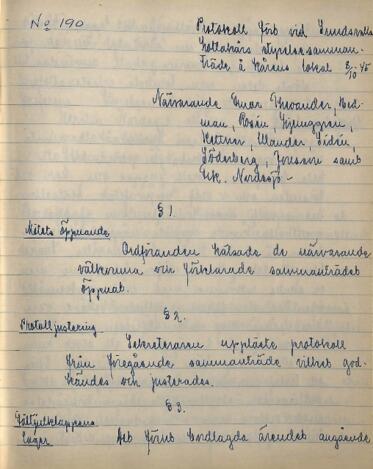 No 190
Protokoll förb vid Sundsvalls
Lottakårs styrelsesamman-
träde å kårens lokal 8/10-45
Närvarande Emar Thurander, Hed-
man, Rosén, Ljunggren,
Kettner, Wander, Lidén,
Söderberg, Jonsson samt
Nordsjö-
§ 1.
Mötets öppnande
Ordföranden hälsade de närvarande
välkomna och förklarade sammanträdet
öppnat.
§ 2.
Protokolljustering
Sekreteraren uppläste protokoll
från föregående sammanträde vilket god-
kändes och justerades.
§ 3.
Fältjulklapparna
Det förut bordlagda ärendet angående